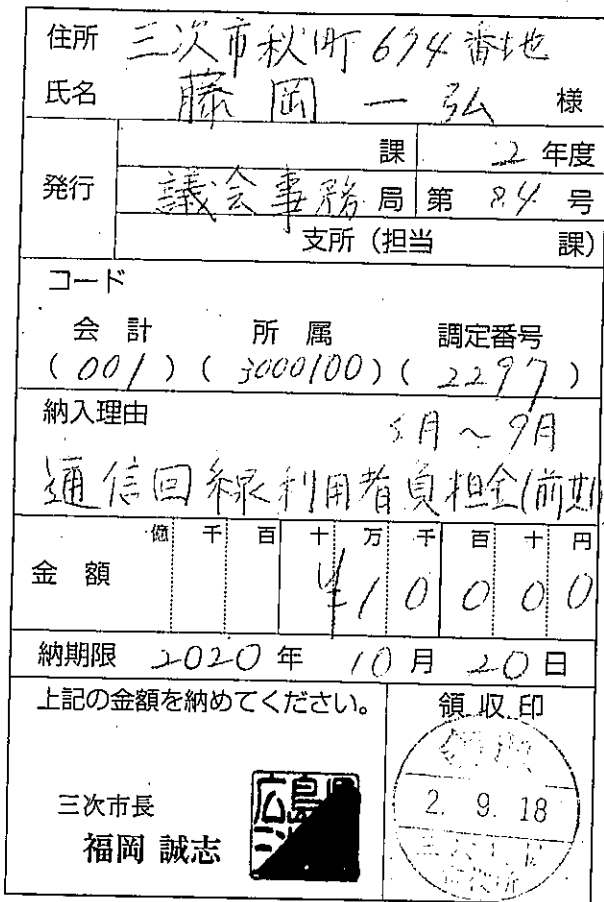 住所 三次市秋町674番地
氏名 藤岡一弘 様
発行
課 2 年度
議会事務局 第 84 号
支所（担当 課）
コード
会計 所属 調定番号
(001) (3000100) (2297)
納入理由
5月～9月
通信回線利用者負担金(前期)
億 千 百 十 万 千 百 十 円
金額 ¥10000
納期限 2020年 10月 20日
上記の金額を納めてください。
領収印
三次市長
福岡 誠志
2. 9. 18